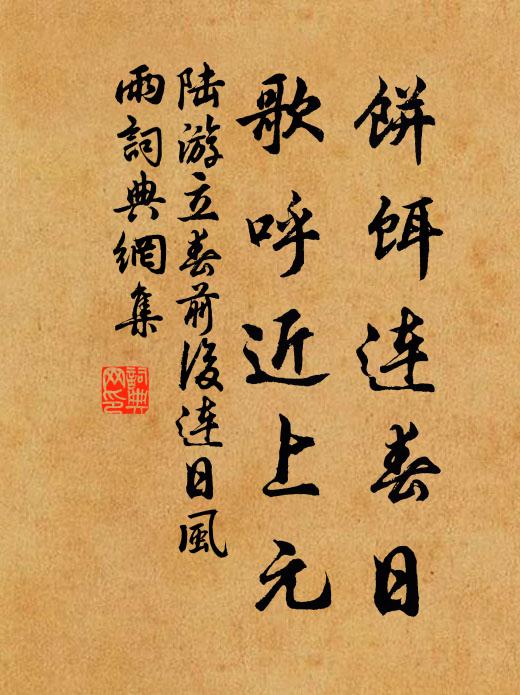 餅餌連春日
歌呼近上元
陆游立春前後連日風
雨詞典網集
詞典
网印